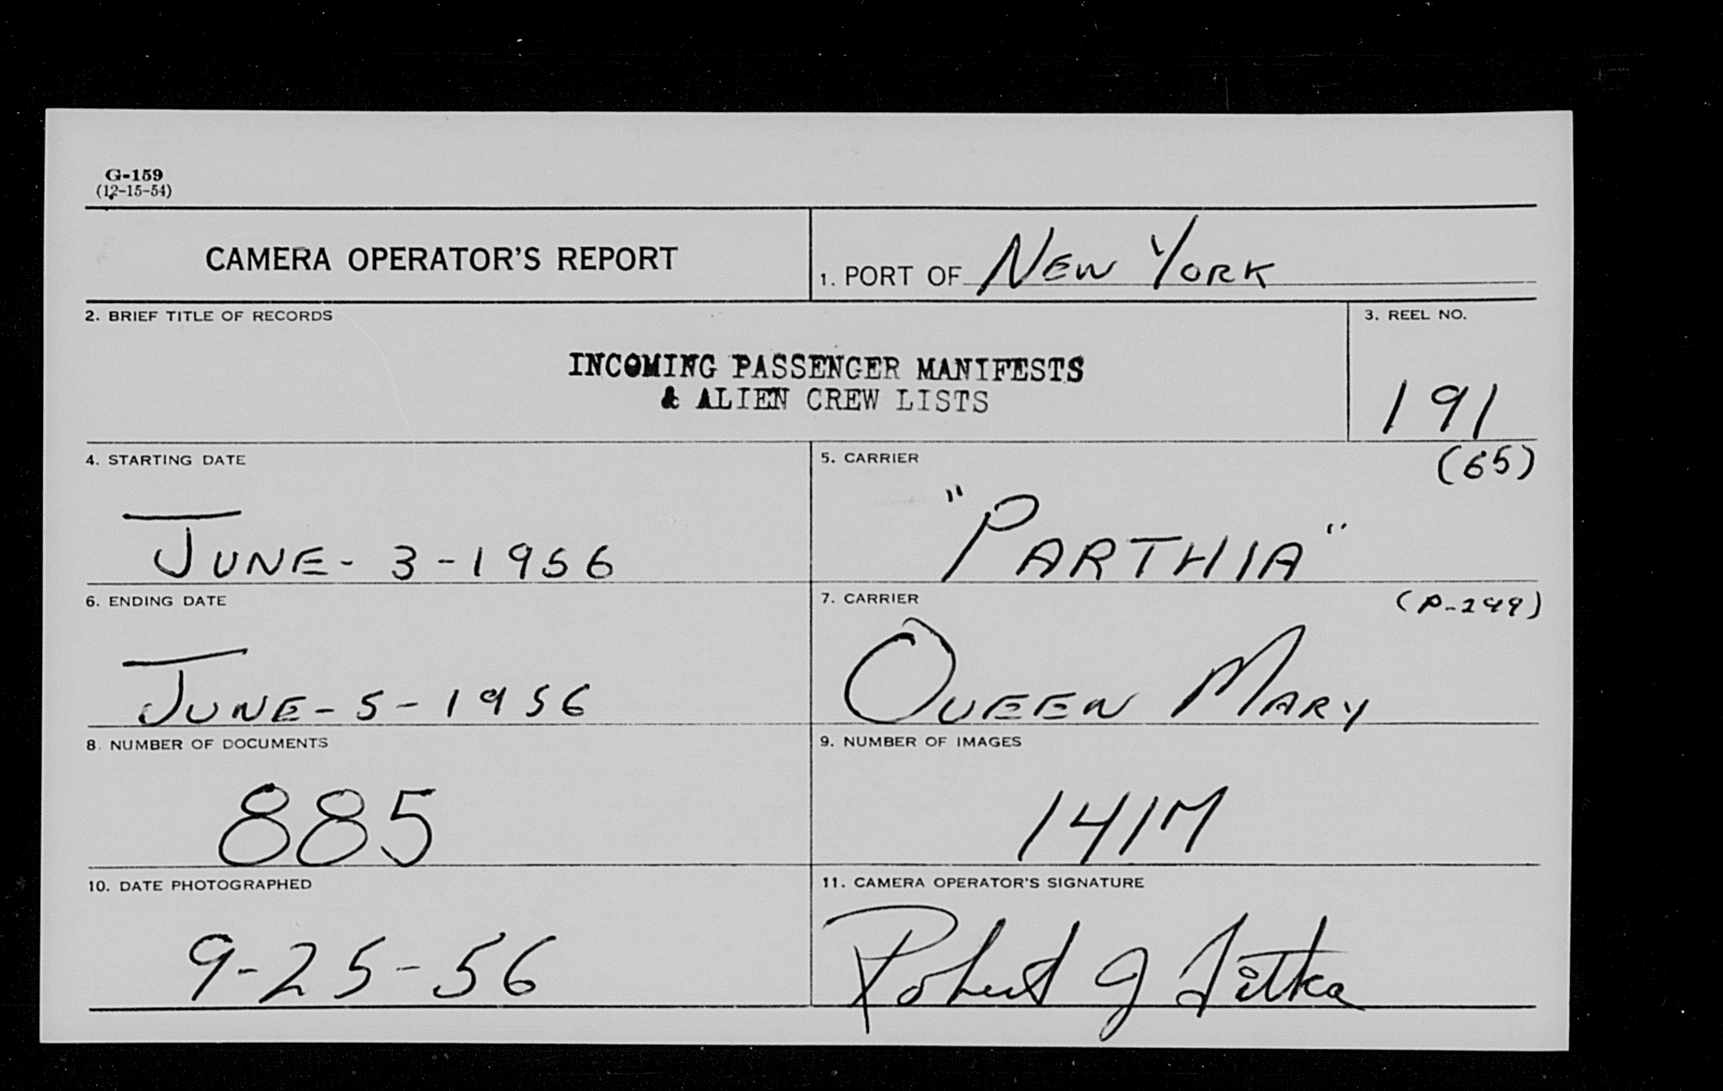 G-159
(12-15-54)
CAMERA OPERATOR'S REPORT
1. PORT OF NEW YORK
2. BRIEF TITLE OF RECORDS
INCOMING PASSENGER MANIFESTS
& ALIEN CREW LISTS
3. REEL NO.
191
4. STARTING DATE
JUNE - 3 - 1956
5. CARRIER
(65)
"PARTHIA"
6. ENDING DATE
JUNE - 5 - 1956
7. CARRIER
(P-299)
QUEEN MARY
8. NUMBER OF DOCUMENTS
885
9. NUMBER OF IMAGES
1417
10. DATE PHOTOGRAPHED
9-25-56
11. CAMERA OPERATOR'S SIGNATURE
Robert J